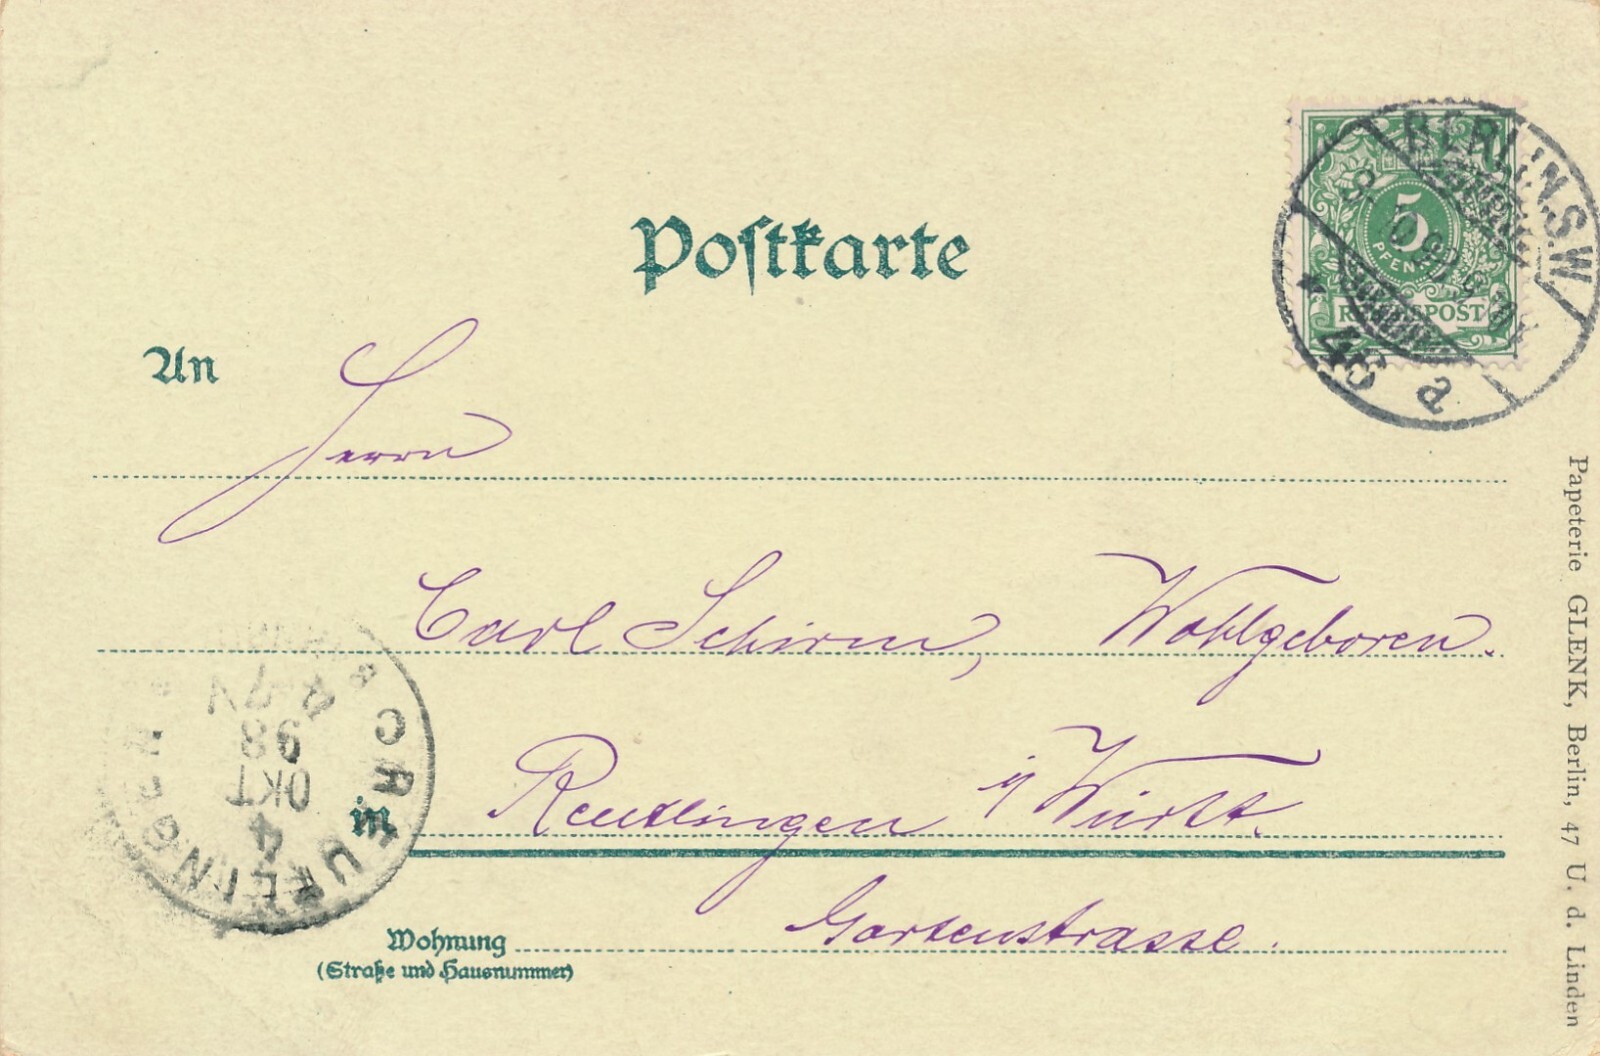 Postkarte
5
PFENNIG
REICHSPOST
BERLIN.S.W
46
a
An
Herrn
Carl Schirm, Wohlgeboren.
in Reutlingen i/ Württ.
Wohnung Gartenstrasse.
(Straße und Hausnummer)
REUTLINGEN
4
OKT
98
8-9N
Papeterie GLENK, Berlin, 47 U. d. Linden